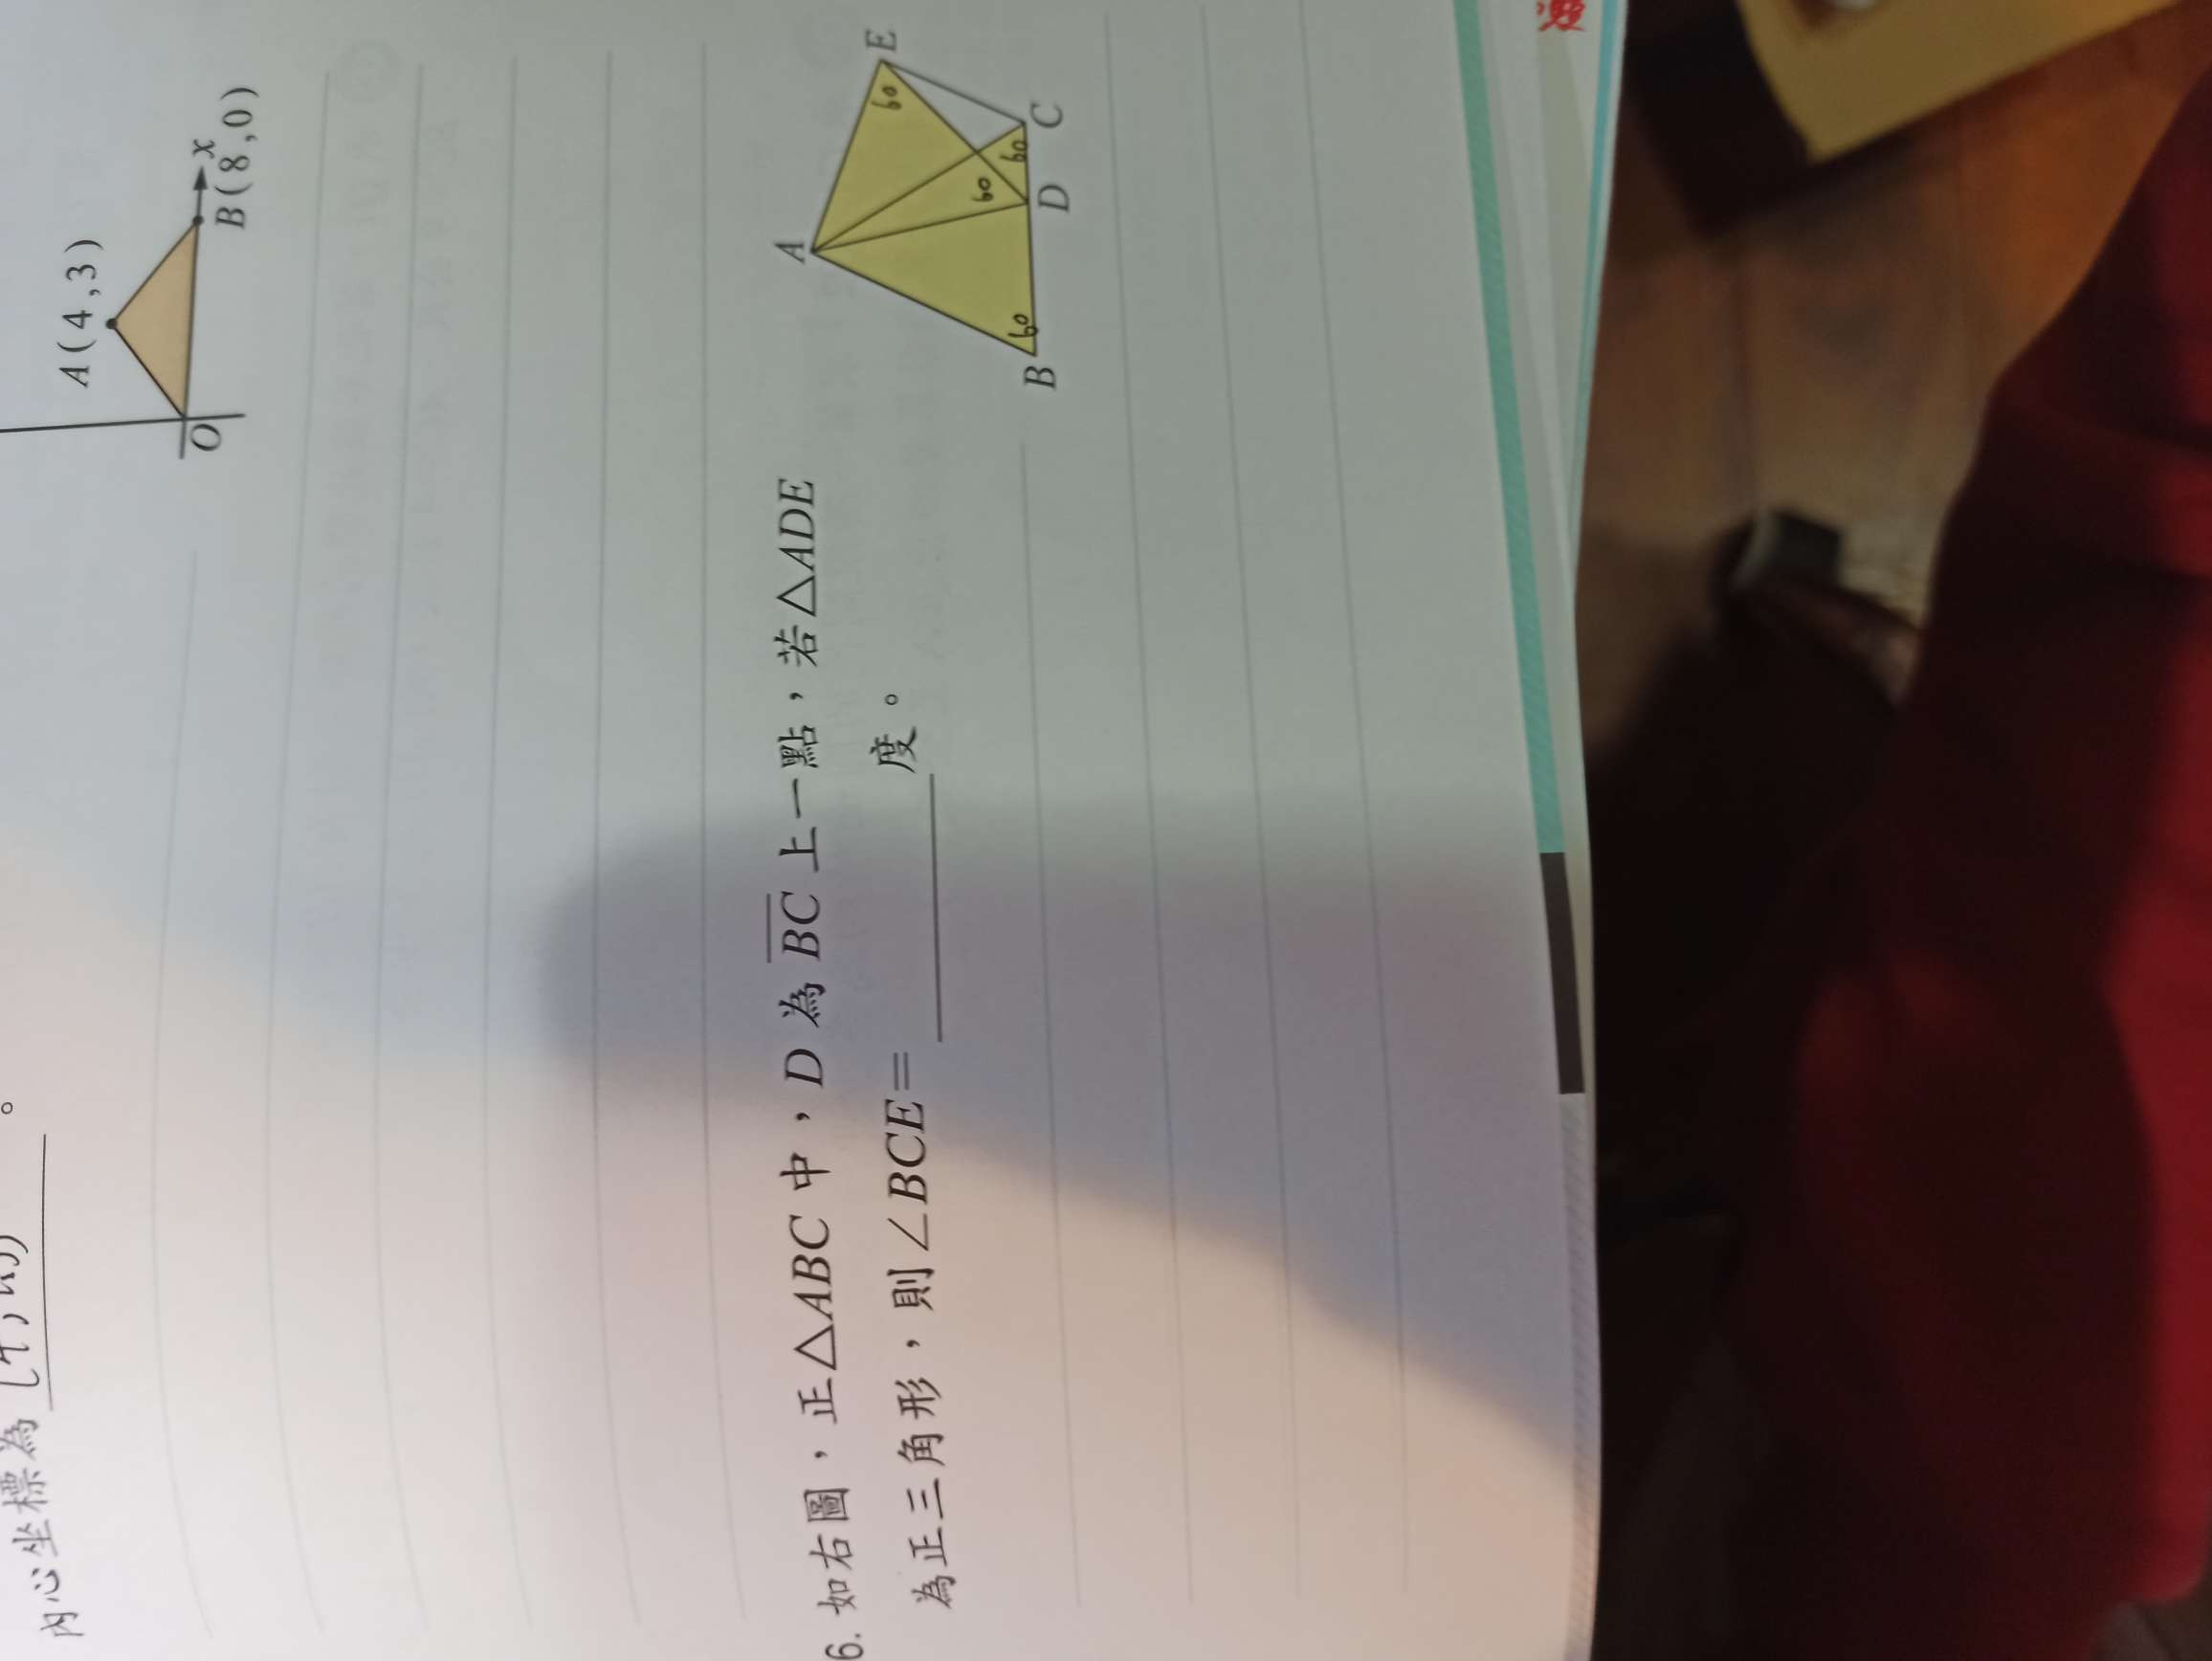 A(4,3)
O
x
B(8,0)
內心坐標為
。
6. 如右圖，正△ABC 中，D 為 BC 上一點，若△ADE
為正三角形，則∠BCE= 度。
A
E
60
60
60
60
B
D
C